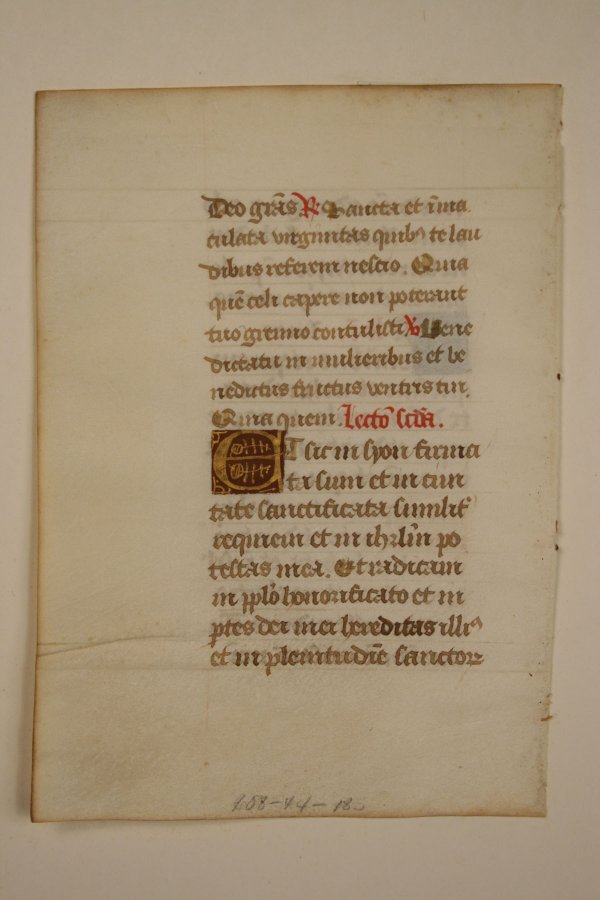 Deo grãs ℟ Sancta et ĩma
culata virginitas quibꝰ te lau
dibus referem nescio. Quia
quẽ celi capere non poterant
tuo gremio contulisti ℣ Bene
dicta tu in mulieribus et be
nedictus fructus ventris tui.
Quia quem. Lectõ scďa.
ET sic in syon firma
ta sum et in ciui
tate sanctificata similiť
requieui et in ihrlm̃ po
testas mea. Et radicaui
in ppl̃o honorificato et in
ꝑtes dei mei hereditas illiꝰ
et in plenitudiẽ sanctoꝝ